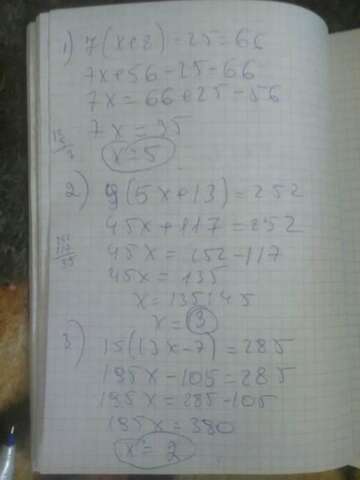 1) 7(x+8)-25=66
7x+56-25-66
7x=66+25-56
7x=35
x=5
2) 9(5x+13)=252
45x+117=252
45x=252-117
45x=135
x=135:45
x=3
3) 15(13x-7)=285
195x-105=285
195x=285-105
195x=390
x=2